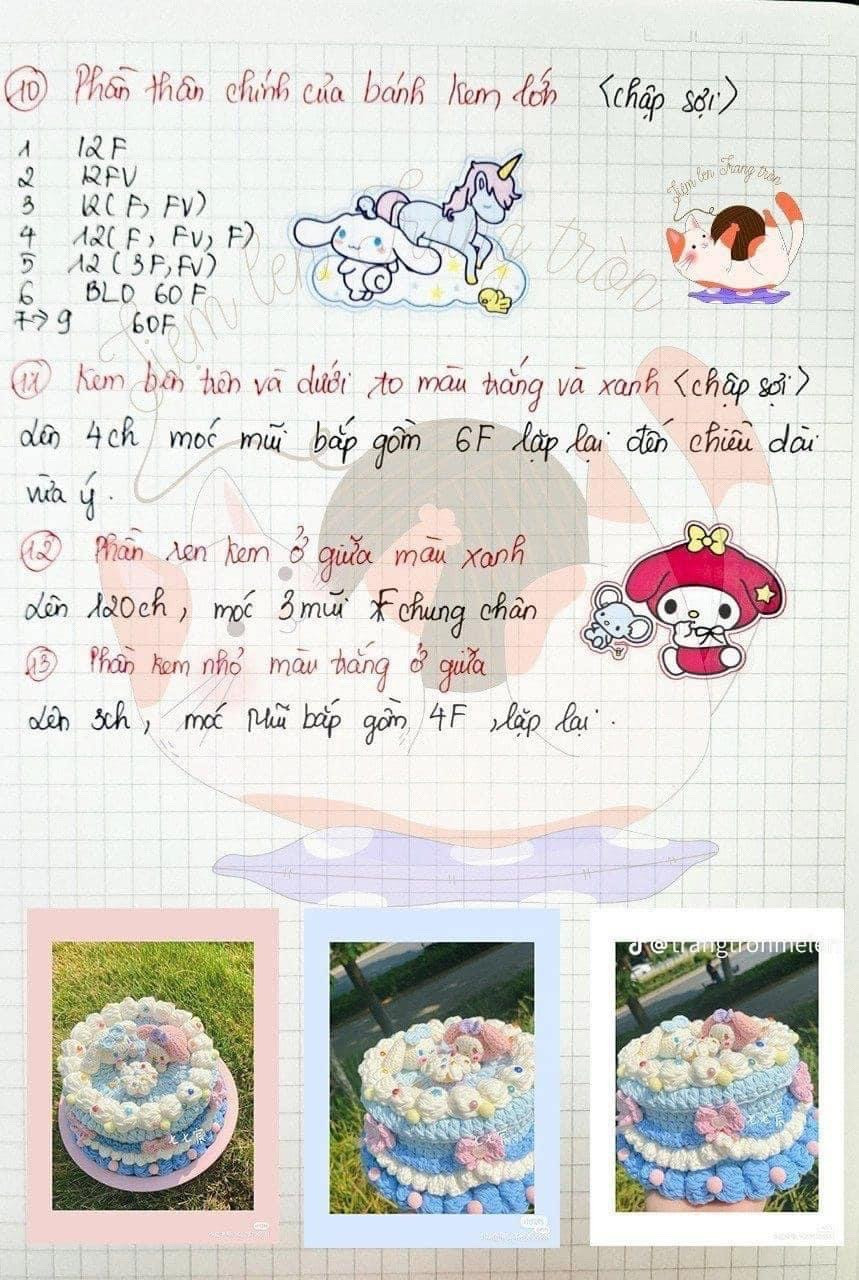 10 Phần thân chính của bánh kem lớn <chập sợi>
1 12F
2 12FV
3 12(F, FV)
4 12(F, FV, F)
5 12(3F, FV)
6 BLO 60F
7->9 60F
Tiệm len Trang tròn
Tiệm len Trang tròn
11 Kem bên trên và dưới to màu trắng và xanh <chập sợi>
Lên 4ch móc mũi bắp gồm 6F lặp lại đến chiều dài
vừa ý.
12 Phần ren kem ở giữa màu xanh
Lên 120ch, móc 3 mũi F chung chân
13 Phần kem nhỏ màu trắng ở giữa
Lên 3ch, móc mũi bắp gồm 4F, lặp lại.
@trangtronmelen